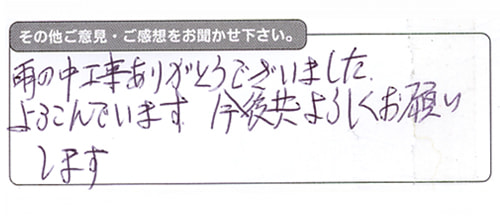 その他ご意見・ご感想をお聞かせ下さい。
雨の中工事ありがとうございました
よろこんでいます 今後共よろしくお願い
します